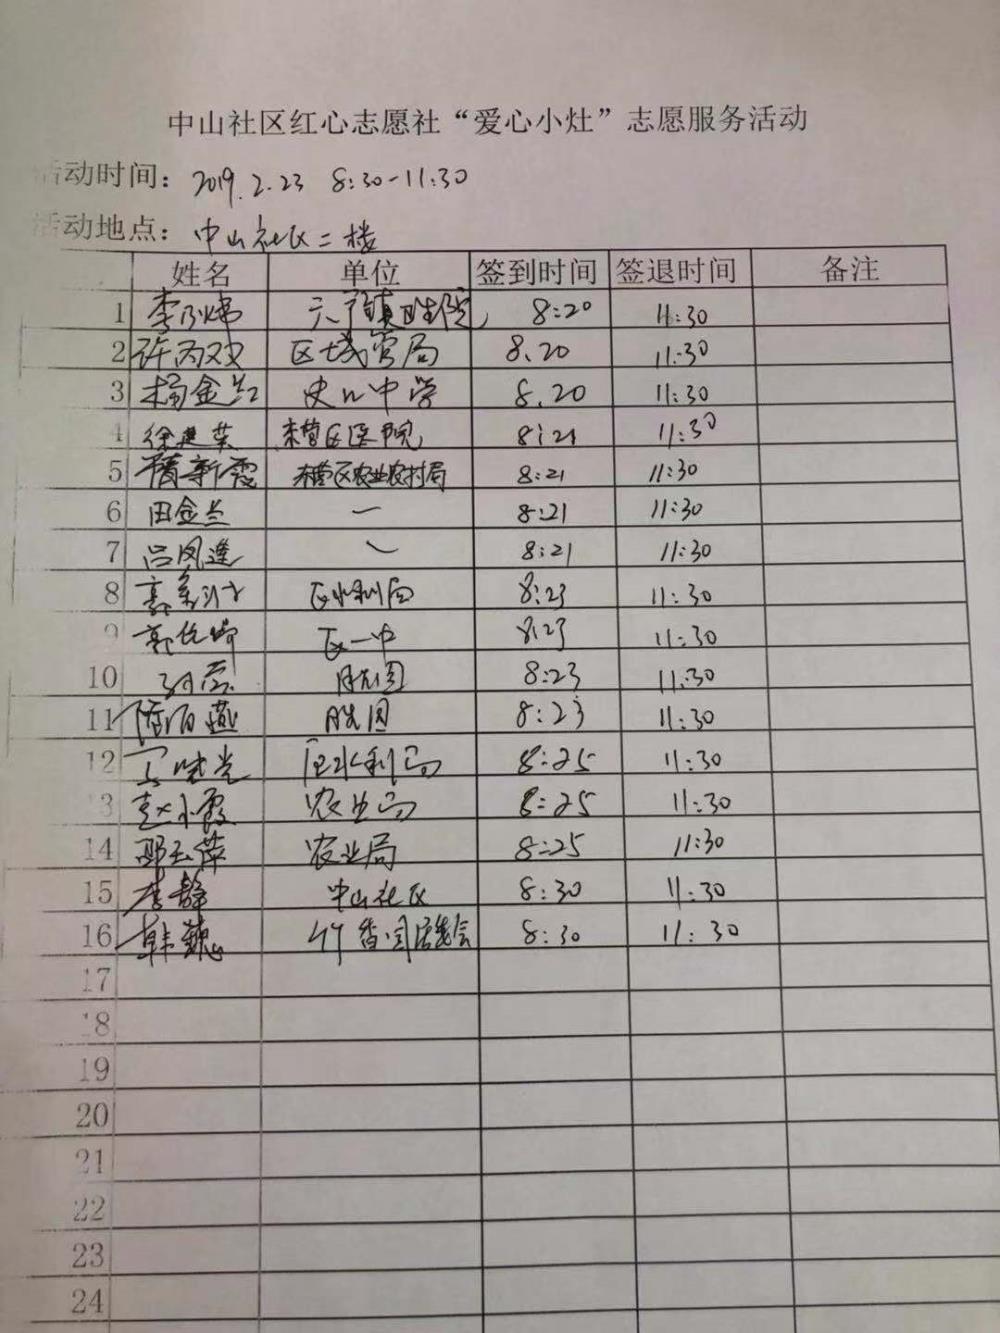 中山社区红心志愿社“爱心小灶”志愿服务活动
活动时间: 2019.2.23 8:30-11:30
活动地点: 中山社区二楼
姓名 单位 签到时间 签退时间 备注
1 8:20 11:30
2 许丙双 区城管局 8.20 11:30
3 杨金兰 史口中学 8.20 11:30
4 徐建荣 东营区医院 8:21 11:30
5 新霞 东营区农业农村局 8:21 11:30
6 田金兰 一 8:21 11:30
7 吕凤莲 8:21 11:30
8 区水利局 8:23 11:30
9 区一中 8:23 11:30
10 胜园 8:23 11:30
11 胜园 8:23 11:30
12 区水利局 8:25 11:30
13 赵小霞 农业局 8:25 11:30
14 邵玉萍 农业局 8:25 11:30
15 李静 中山社区 8:30 11:30
16 韩 8:30 11:30
17
18
19
20
21
22
23
24